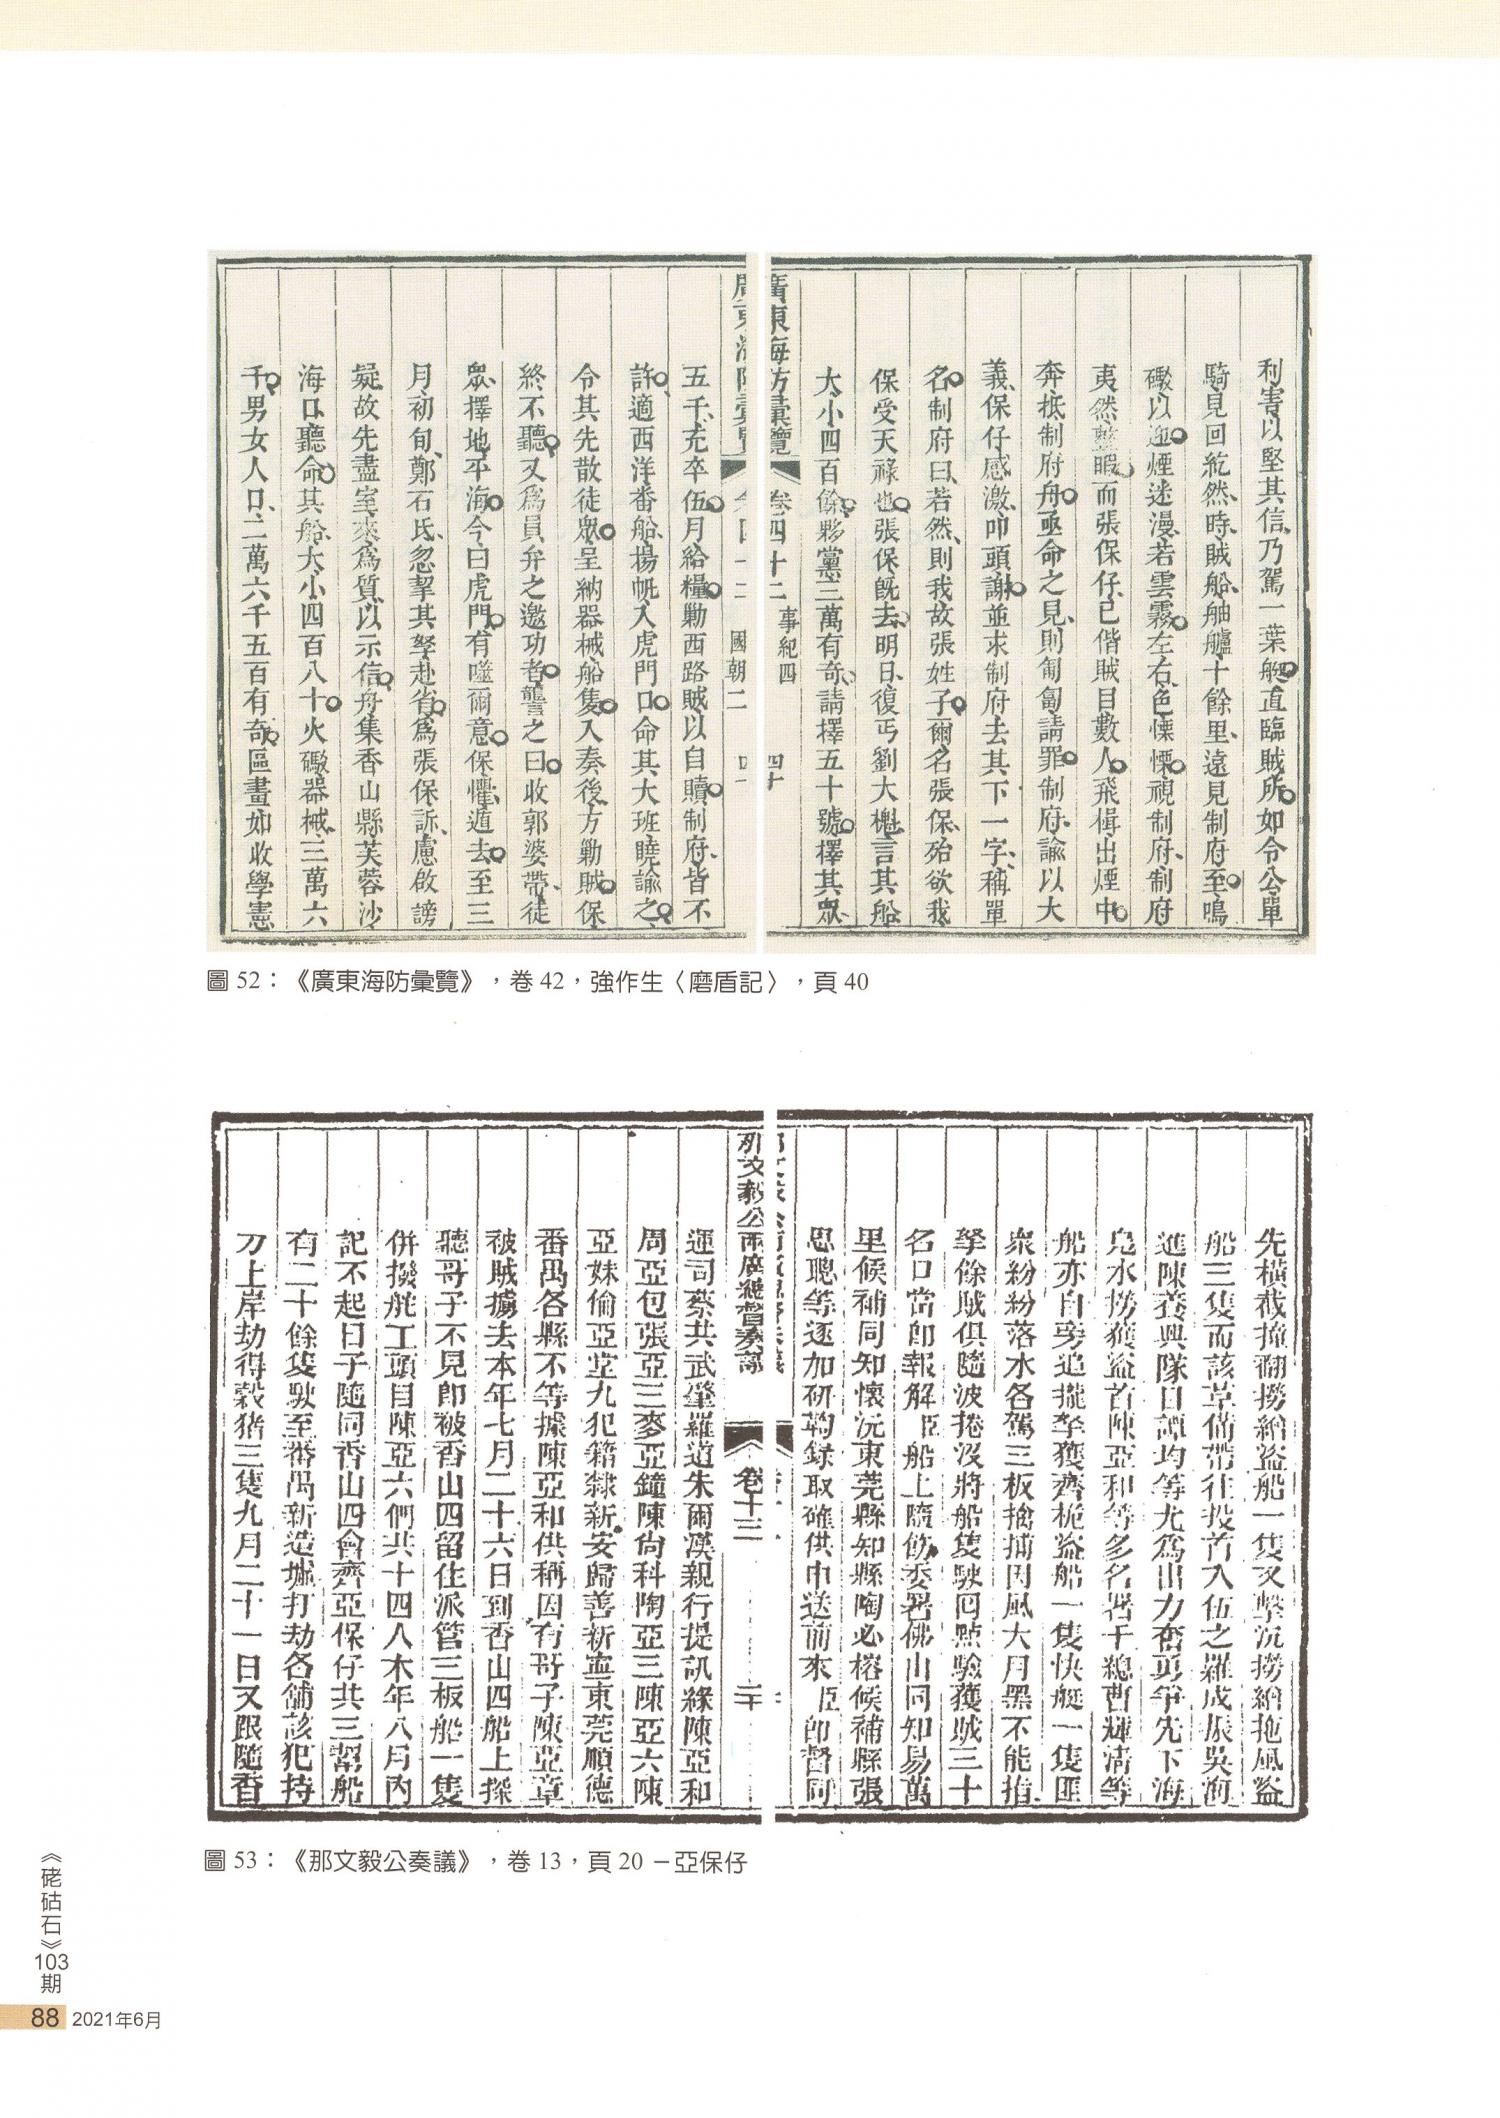 利害以堅其信乃駕一葉艇直臨賊所如令公單
騎見回紇然時賊船舳艫十餘里遠見制府至鳴
礮以迎煙迷漫若雲霧左右色慄慄視制府制府
夷然整暇而張保仔已偕賊目數人飛楫出煙中
奔抵制府舟亟命之見則匍匐請罪制府諭以大
義保仔感激叩頭謝並求制府去其下一字稱單
名制府曰若然則我故張姓子爾名張保殆欲我
保受天祿也張保旣去明日復丐劉大槐言其船
大小四百餘夥黨三萬有奇請擇五十號擇其眾
廣東海防彙覽 卷四十二 事紀四 四十
廣東海防彙覽 卷四十二 國朝二
五千充卒伍月給糧勦西路賊以自贖制府皆不
許適西洋番船揚帆入虎門口命其大班曉諭之
令其先散徒眾呈納器械船隻入奏後方勦賊保
終不聽又爲員弁之邀功者讋之曰收郭婆帶徒
眾擇地平海今曰虎門有噬爾意保懼遁去至三
月初旬鄭石氏忽挈其孥赴省爲張保訴慮啟謗
疑故先盡室來爲質以示信舟集香山縣芙蓉沙
海口聽命其船大小四百八十火礮器械三萬六
千男女人口二萬六千五百有奇區畫如收學憲
圖 52：《廣東海防彙覽》，卷 42，強作生〈磨盾記〉，頁 40
先橫截撞翻撈繒盜船一隻又擊沉撈繒拖風盜
船三隻而該革備帶往投首入伍之羅成振吳海
進陳養興隊目譚均等尤為出力奮勇爭先下海
鳧水撈獲盜首陳亞和等多名署千總曹輝清等
船亦自旁追攏拏獲齊桅盜船一隻快艇一隻匪
衆紛紛落水各駕三板擒捕因風大月黑不能指
拏餘賊俱隨波捲沒將船隻駛回點驗獲賊三十
名口當卽報解臣船上隨飭委署佛山同知易萬
里候補同知懷沅東莞縣知縣陶必榕候補縣張
思聰等逐加研鞫録取確供申送前來臣卽督同
那文毅公兩廣總督奏議 卷十三 二十
運司蔡共武肇羅道朱爾漢親行提訊緣陳亞和
周亞包張亞三麥亞鐘陳尙科陶亞三陳亞六陳
亞妹倫亞堂九犯籍隸新安歸善新寧東莞順德
番禺各縣不等據陳亞和供稱因有哥子陳亞章
被賊擄去本年七月二十六日到香山四船上探
聽哥子不見卽被香山四留住派管三板船一隻
併撥舵工頭目陳亞六們共十四人本年八月內
記不起日子隨同香山四會齊亞保仔共三幇船
有二十餘隻駛至番禺新造墟打劫各舖該犯持
刀上岸劫得穀猪三隻九月二十一日又跟隨香
圖 53：《那文毅公奏議》，卷 13，頁 20 －亞保仔
《硓𥑮石》103期
88 2021年6月